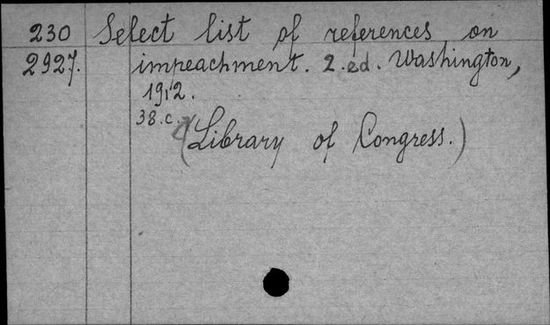 230 Select list of references on
2927. impeachment. 2.ed. Washington,
1912.
38.c.
(Library of Congress.)